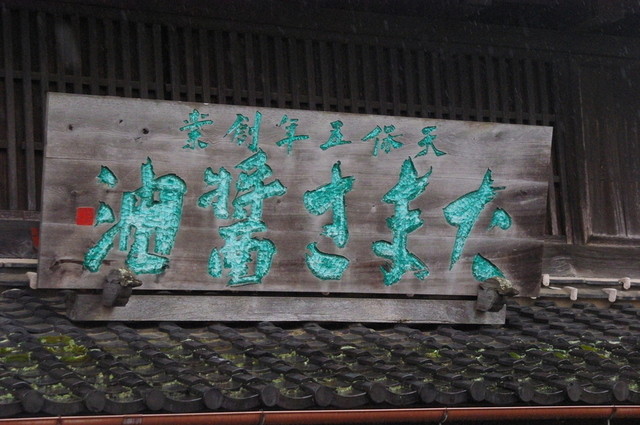 天保五年創業
たまさ醤油